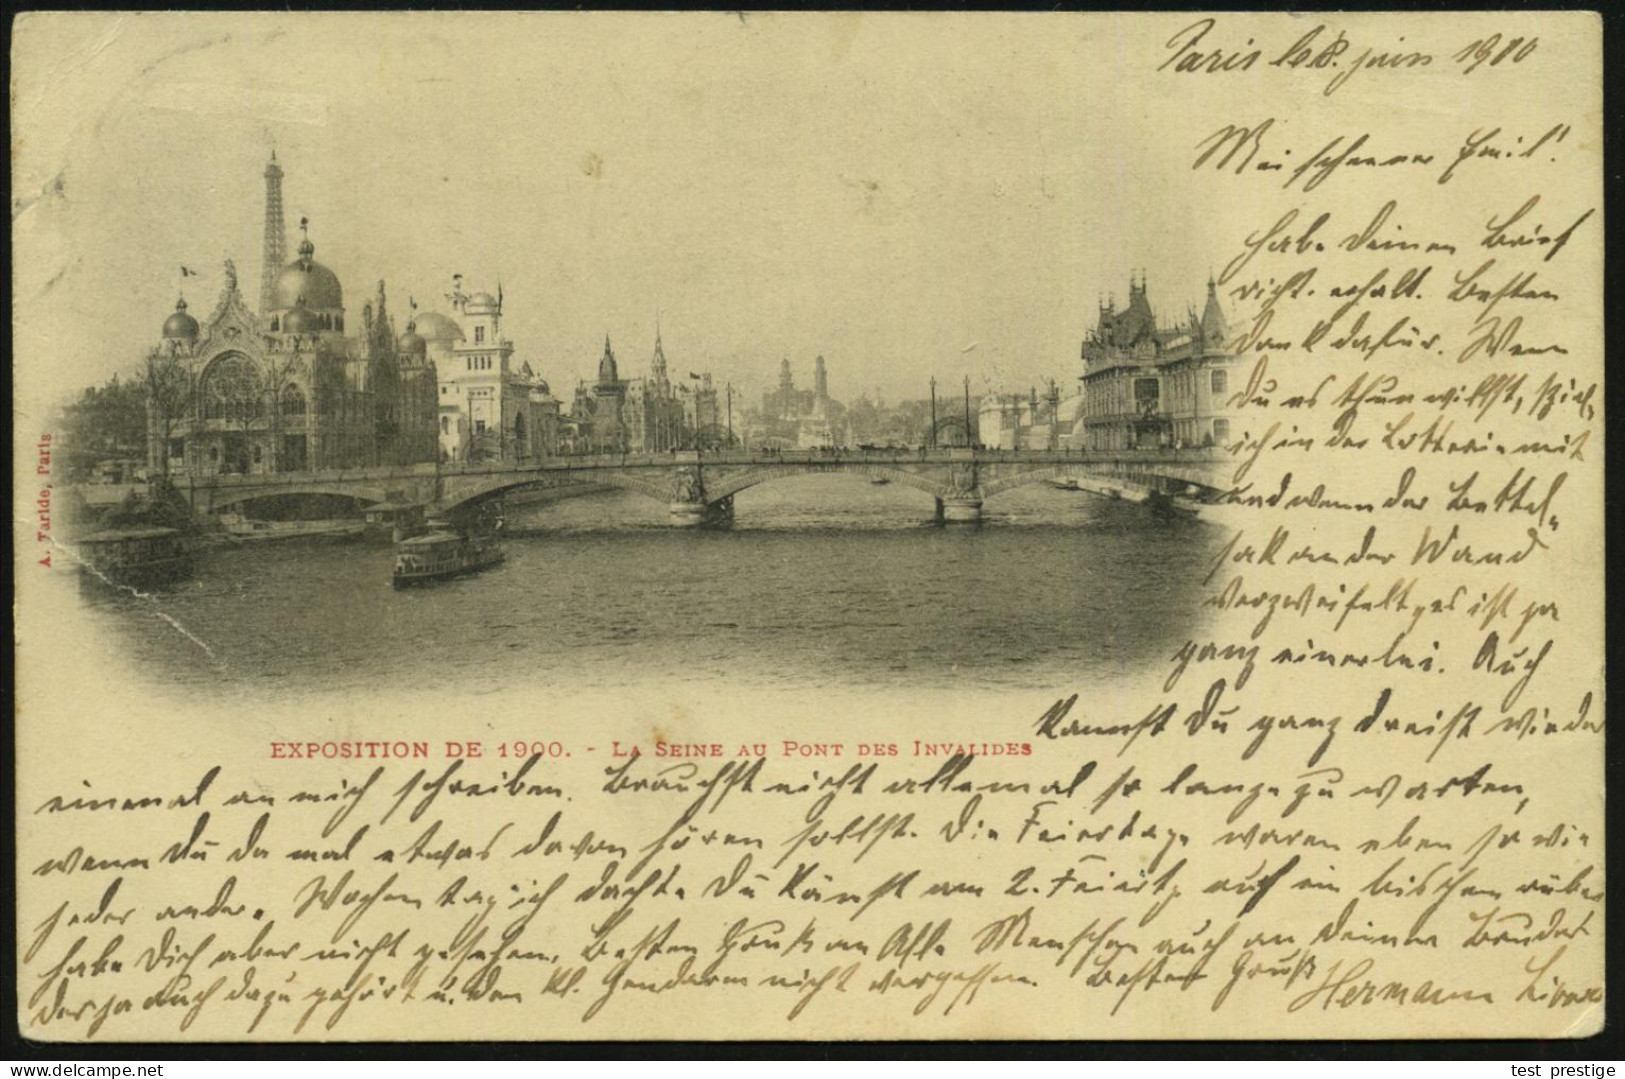 Paris le 8. juin 1900
Mei scheener Emil!
Habe Deinen Brief
richt. erhalt. Besten
Dank dafür. Wenn
Du es thun willst, spiel
ich in der Lotterie mit
und wenn der Bettel-
sak an der Wand
verzweifelt, es ist ja
ganz einerlei. Auch
kannst Du ganz dreist wieder
A. Taride, Paris
EXPOSITION DE 1900. - LA SEINE AU PONT DES INVALIDES
einmal an mich schreiben. Brauchst nicht allemal so lange zu warten,
wenn Du da mal etwas davon hören sollst. Die Feiertage waren eben so wie
jeder andere Wochentag, ich dachte Du kämst am 2. Feiert. auf ein bischen rüber
habe Dich aber nicht gesehen. Besten Gruß an Alle Menschen auch an Deinen Bruder
der ja auch dazu gehört u. den kl. Gendarm nicht vergessen. Besten Gruß
Hermann
test_prestige
delcampe.net